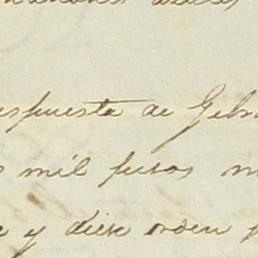 respuesta de Febr
s mil pesos m
e y diese orden p